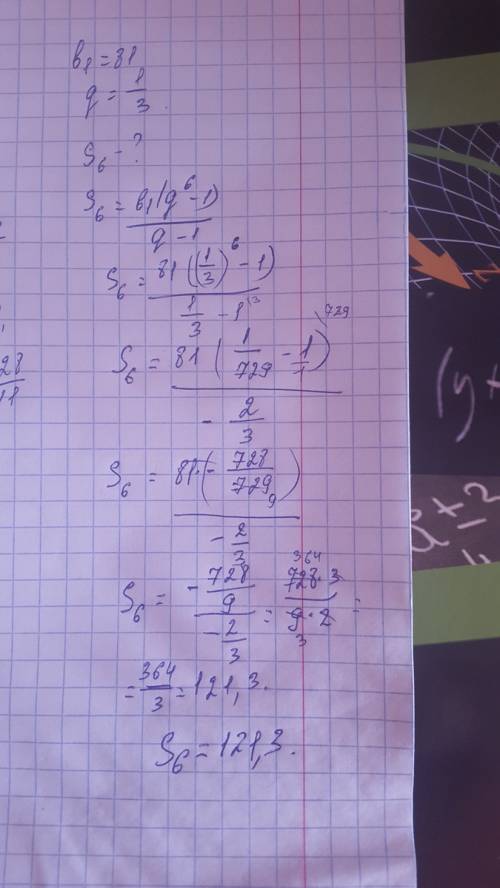 b₁ = 81
q = 1/3.
S₆ - ?
S₆ = b₁(q⁶ - 1) / (q - 1)
S₆ = 81((1/3)⁶ - 1) / (1/3 - 1\3)
S₆ = 81(1/729 - 1/1 \729) / (- 2/3)
S₆ = 81·(- 728/729 9) / (- 2/3)
S₆ = (- 728/9) / (- 2/3) = 728·3 / 9·2 =
364
3
= 364/3 = 121,3.
S₆ = 121,3.
28/11
(y+